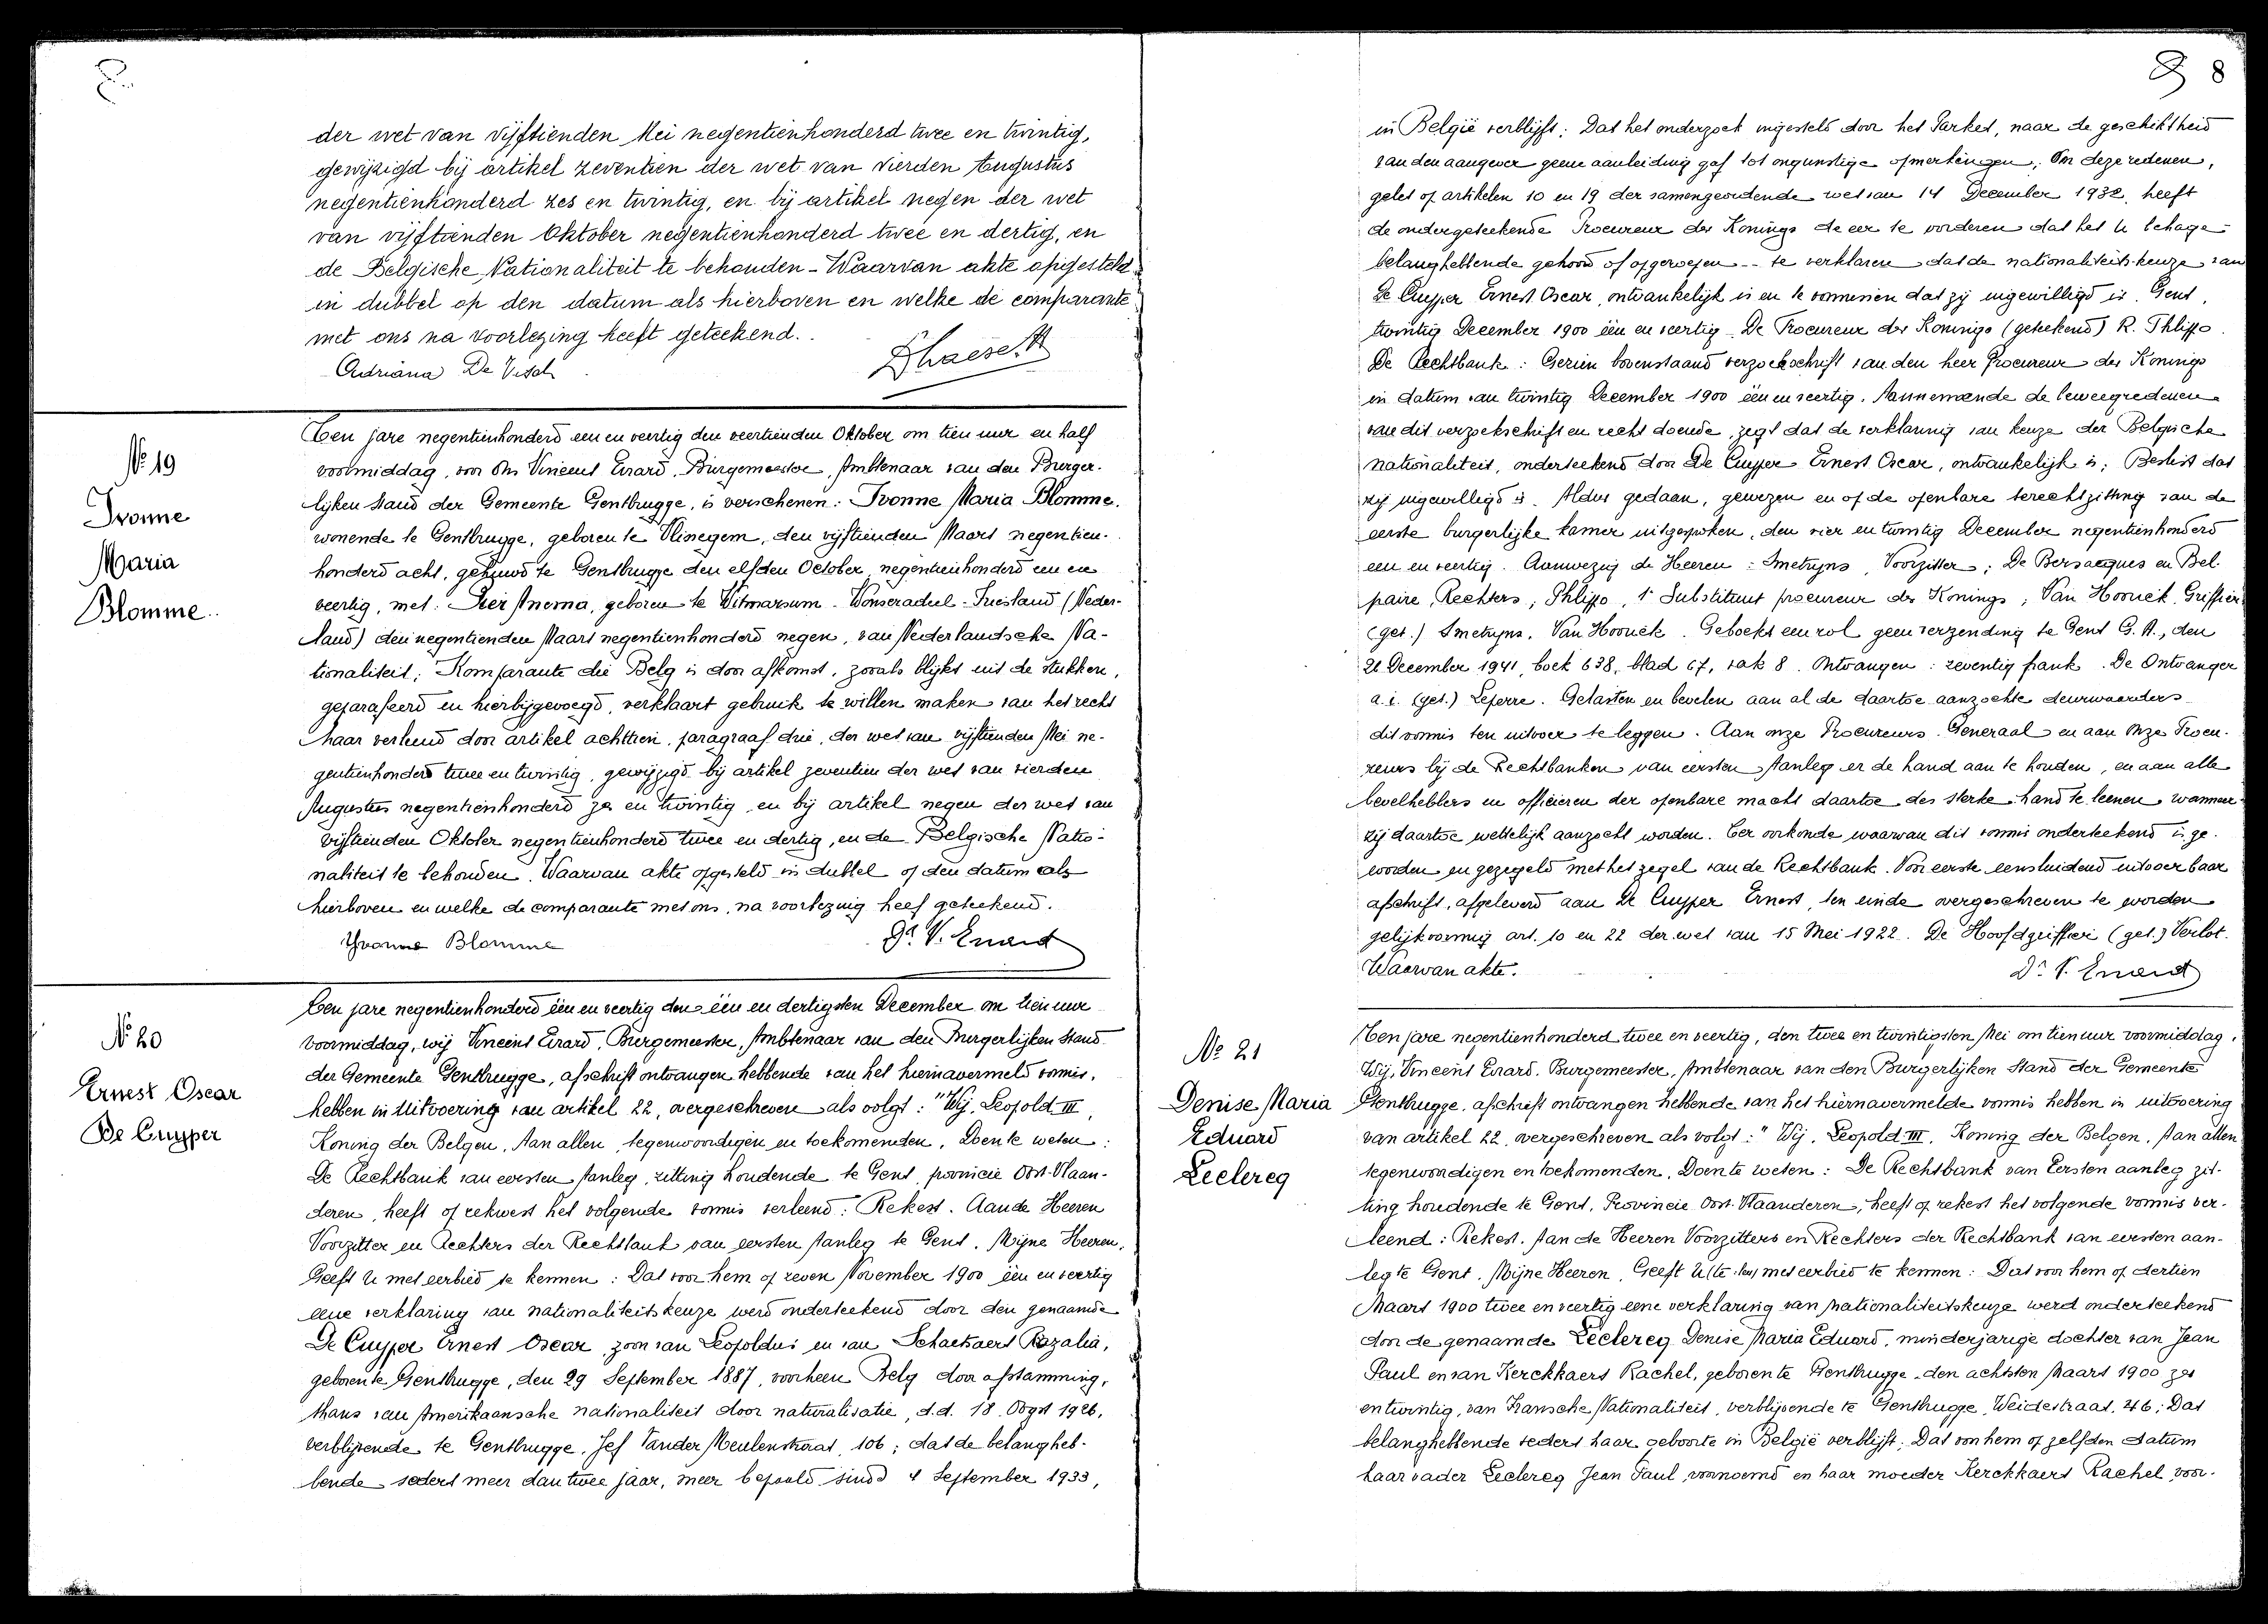 der wet van vijftienden Mei negentienhonderd twee en twintig,
gewijzigd bij artikel zeventien der wet van vierden Augustus
negentienhonderd zes en twintig, en bij artikel negen der wet
van vijftienden Oktober negentienhonderd twee en dertig, en
de Belgische Nationaliteit te behouden - Waarvan akte opgesteld
in dubbel op den datum als hierboven en welke de comparante
met ons na voorlezing heeft geteekend.
Adriana De Visch
Dhaese. A
Nº 19
Ivonne
Maria
Blomme
Ten jare negentienhonderd een en veertig den veertienden Oktober om tien uur en half
voormiddag, voor Ons Vincent Evard, Burgemeester, Ambtenaar van den Burger-
lijken stand der Gemeente Gentbrugge, is verschenen: Ivonne Maria Blomme,
wonende te Gentbrugge, geboren te Vlinegem, den vijftienden Maart negentien-
honderd acht, gehuwd te Gentbrugge den elfden October negentienhonderd een en
veertig, met: Sier Anema, geboren te Witmarsum - Wonseradeel - Friesland (Neder-
land) den negentienden Maart negentienhonderd negen, van Nederlandsche Na-
tionaliteit; Komparante die Belg is door afkomst, zooals blijkt uit de stukken,
geparafeerd en hierbijgevoegd, verklaart gebruik te willen maken van het recht
haar verleend door artikel achttien, paragraaf drie, der wet van vijftienden Mei ne-
gentienhonderd twee en twintig, gewijzigd bij artikel zeventien der wet van vierden
Augustus negentienhonderd zes en twintig, en bij artikel negen der wet van
vijftienden Oktober negentienhonderd twee en dertig, en de Belgische Natio-
naliteit te behouden. Waarvan akte opgesteld in dubbel op den datum als
hierboven en welke de comparante met ons, na voorlezing heef geteekend.
Yvonne Blomme
Dr. V. Evard
Nº 20
Ernest Oscar
De Cuyper
Ten jare negentienhonderd één en veertig den één en dertigsten December om tien uur
voormiddag, wij Vincent Evard, Burgemeester, Ambtenaar van den Burgerlijken Stand
der Gemeente Gentbrugge, afschrift ontvangen hebbende van het hiernavermeld vonnis,
hebben in uitvoering van artikel 22, overgeschreven als volgt: "Wij, Leopold III,
Koning der Belgen, Aan allen, tegenwoordigen en toekomenden, Doen te weten:
De Rechtbank van eersten Aanleg, zitting houdende te Gent, provincie Oost-Vlaan-
deren, heeft op rekwest het volgende vonnis verleend: Rekest. Aan de Heeren
Voorzitter en Rechters der Rechtbank van eersten Aanleg te Gent. Mijne Heeren,
Geeft U met eerbied te kennen: Dat voor hem op zeven November 1900 één en veertig
eene verklaring van nationaliteitskeuze werd onderteekend door den genaamde
De Cuyper Ernest Oscar, zoon van Leopoldus en van Schaetsaert Rozalia,
geboren te Gentbrugge, den 29 September 1887, voorheen Belg door afstamming,
thans van Amerikaansche nationaliteit door naturalisatie, d.d. 18 Oogst 1926,
verblijvende te Gentbrugge, Jef Vander Meulenstraat, 106; dat de belangheb-
bende sedert meer dan twee jaar, meer bepaald sinds 4 September 1933,
8
in België verblijft; Dat het onderzoek ingesteld door het Parket, naar de geschiktheid
van den aangever geene aanleiding gaf tot ongunstige opmerkingen; Om deze redenen,
gelet op artikelen 10 en 19 der samengevoegde wet van 14 December 1932, heeft
de ondergeteekende Procureur des Konings de eer te vorderen dat het U behage -
belanghebbende gehoord of opgeroepen -- te verklaren dat de nationaliteits-keuze van
De Cuyper Ernest Oscar, ontvankelijk is en te vonnissen dat zij ingewilligd is. Gent,
twintig December 1900 één en veertig. De Procureur des Konings (geteekend) R. Phlippo.
De Rechtbank: Gezien bovenstaand verzoekschrift van den heer Procureur des Konings
in datum van twintig December 1900 één en veertig. Aannemende de beweegredenen
van dit verzoekschrift en recht doende, zegt dat de verklaring van keuze der Belgische
nationaliteit, onderteekend door De Cuyper Ernest Oscar, ontvankelijk is; Beslist dat
zij ingewilligd is. Aldus gedaan, gewezen en op de openbare terechtzitting van de
eerste burgerlijke kamer uitgesproken, den vier en twintig December negentienhonderd
een en veertig. Aanwezig de Heeren: Smetryns, Voorzitter; De Bersacques en Bel-
paire, Rechters; Phlippo, 1e Substituut procureur des Konings; Van Hoorick, Griffier
(get.) Smetryns. Van Hoorick. Geboekt een rol geen verzending te Gent G.A., den
26 December 1941, boek 638, blad 67, vak 8. Ontvangen: zeventig frank. De Ontvanger
a.i. (get.) Leferre. Gelasten en bevelen aan al de daartoe aanzochte deurwaarders
dit vonnis ten uitvoer te leggen. Aan onze Procureurs-Generaal en aan Onze Procu-
reurs bij de Rechtbanken van eersten Aanleg er de hand aan te houden, en aan alle
bevelhebbers en officieren der openbare macht daartoe de sterke hand te leenen wanneer
zij daartoe wettelijk aanzocht worden. Ter oorkonde waarvan dit vonnis onderteekend is ge-
worden en gezegeld met het zegel van de Rechtbank. Voor eerste eensluidend uitvoerbaar
afschrift, afgeleverd aan De Cuyper Ernest, ten einde overgeschreven te worden
gelijkvormig art. 10 en 22 der wet van 15 Mei 1922. De Hoofdgriffier (get.) Verlot.
Waarvan akte.
Dr. V. Evard
Nº 21
Denise Maria
Eduard
Leclercq
Ten jare negentienhonderd twee en veertig, den twee en twintigsten Mei om tien uur voormiddag,
Wij, Vincent Evard, Burgemeester, Ambtenaar van den Burgerlijken Stand der Gemeente
Gentbrugge, afschrift ontvangen hebbende van het hiernavermelde vonnis hebben in uitvoering
van artikel 22, overgeschreven als volgt: "Wij, Leopold III, Koning der Belgen, Aan allen
tegenwoordigen en toekomenden, Doen te weten: De Rechtbank van Eersten aanleg zit-
ting houdende te Gent, Provincie Oost-Vlaanderen, heeft op rekest het volgende vonnis ver-
leend: Rekest. Aan de Heeren Voorzitters en Rechters der Rechtbank van eersten aan-
leg te Gent. Mijne Heeren, Geeft U met eerbied te kennen: Dat voor hem op dertien
Maart 1900 twee en veertig eene verklaring van nationaliteitskeuze werd onderteekend
door de genaamde Leclercq Denise Maria Eduard, minderjarige dochter van Jean
Paul en van Kerckkaert Rachel, geboren te Gentbrugge den achtsten Maart 1900 zes
en twintig, van Fransche Nationaliteit, verblijvende te Gentbrugge, Weidestraat, 46; Dat
belanghebbende sedert haar geboorte in België verblijft; Dat voor hem op zelfden datum
haar vader Leclercq Jean Paul, voornoemd en haar moeder Kerckkaert Rachel, voor-